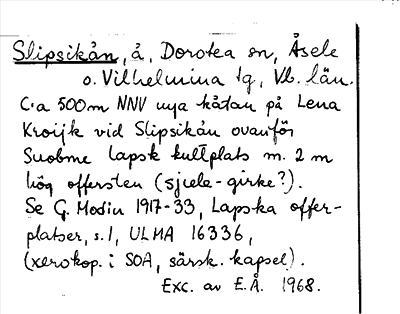 Slipsikån, å, Dorotea sn, Åsele
o. Vilhelmina tg, Vb. län.
C:a 500m NNV nya kåtan på Lena
Kroijk vid Slipsikån ovanför
Suobme lapsk kultplats m. 2 m
hög offersten (sjiele-girke?).
Se G. Modin 1917-33, Lapska offer-
platser, s. 1, ULMA 16336,
(xerokop. i SOA, särsk. kapsel).
Exc. av E.Å. 1968.